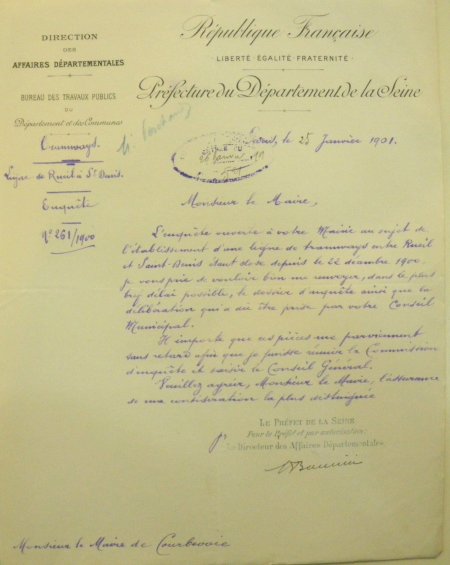 DIRECTION
DES
AFFAIRES DÉPARTEMENTALES
BUREAU DES TRAVAUX PUBLICS
DU
Département et des Communes
Tramways.
Ligne de Rueil à St Denis.
Enquête
N° 261/1900
République Française
LIBERTÉ ÉGALITÉ FRATERNITÉ
Préfecture du Département de la Seine
Paris, le 25 Janvier 1901.
Monsieur le Maire,
L'enquête ouverte à votre Mairie au sujet de
l'établissement d'une ligne de tramways entre Rueil
et Saint-Denis étant close depuis le 22 décembre 1900
je vous prie de vouloir bien me renvoyer, dans le plus
bref délai possible, le dossier d'enquête ainsi que la
délibération qui a dû être prise par votre Conseil
Municipal.
Il importe que ces pièces me parviennent
sans retard afin que je puisse réunir la Commission
d'enquête et saisir le Conseil Général.
Veuillez agréer, Monsieur le Maire, l'assurance
de ma considération la plus distinguée
LE PRÉFET DE LA SEINE
Pour le Préfet et par autorisation:
Le Directeur des Affaires Départementales,
Monsieur le Maire de Courbevoie